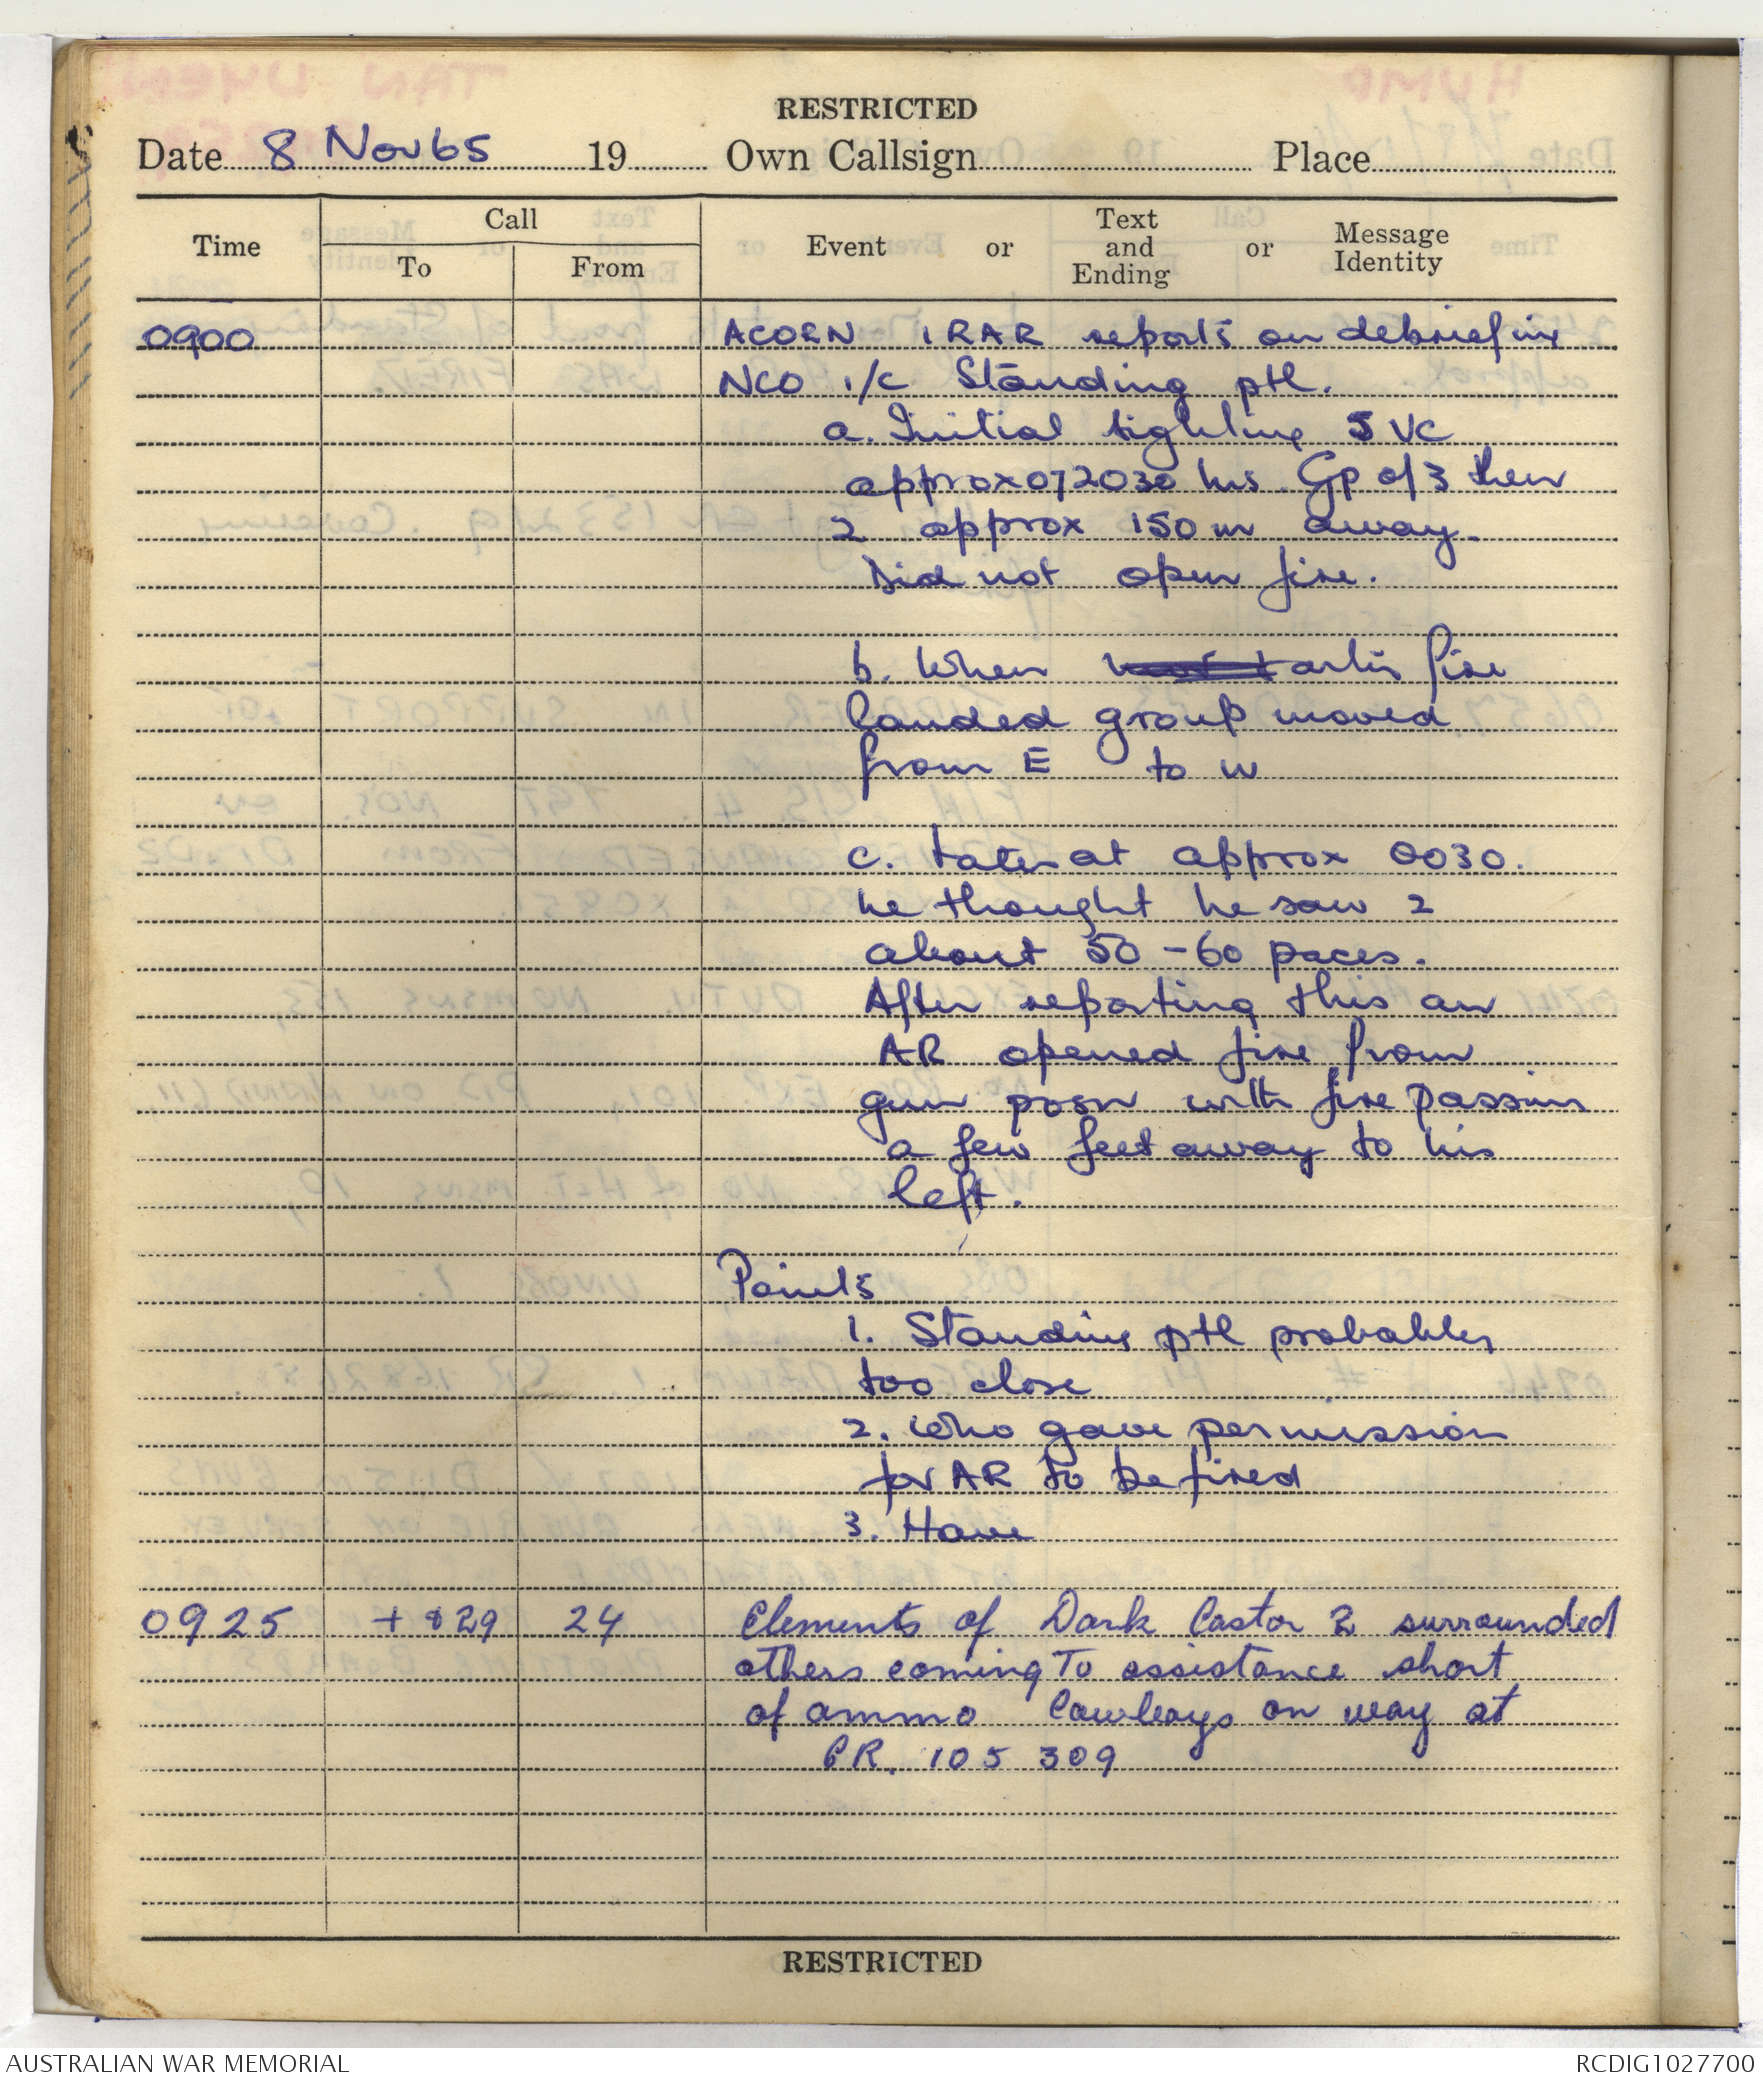 RESTRICTED
Date 8 Nov 65 19 Own Callsign Place
Time Call To From Event or Text and Ending or Message Identity
0900 ACORN 1 RAR reports on debriefing
NCO i/c Standing ptl.
a. Initial sighting 5 VC
approx 072030 hrs. Gp of 3 then
2 approx 150 m away.
Did not open fire.
b. When arty fire
landed group moved
from E to W
c. Later at approx 0030.
he thought he saw 2
about 50-60 paces.
After reporting this an
AR opened fire from
gun posn with fire passing
a few feet away to his
left.
Points
1. Standing ptl probably
too close
2. Who gave permission
for AR to be fired
3. Have
0925 + 829 24 Elements of Dark Castor 2 surrounded
others coming To assistance short
of ammo Cowboys on way at
CR. 105 309
RESTRICTED
AUSTRALIAN WAR MEMORIAL
RCDIG1027700